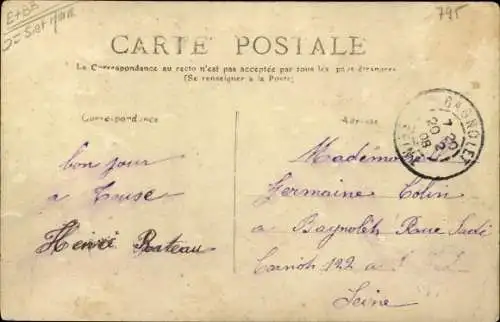 795
CARTE POSTALE
La Correspondance au recto n'est pas acceptée par tous les pays étrangers
(Se renseigner à la Poste)
Correspondance
Adresse
BAGNOLET
7 20
20 2
08
bon jour
a touse
Henri Rateau
Madémoi
Germaine Colin
a Bagnolet Rue Sadi
Carnot 122 a
Seine